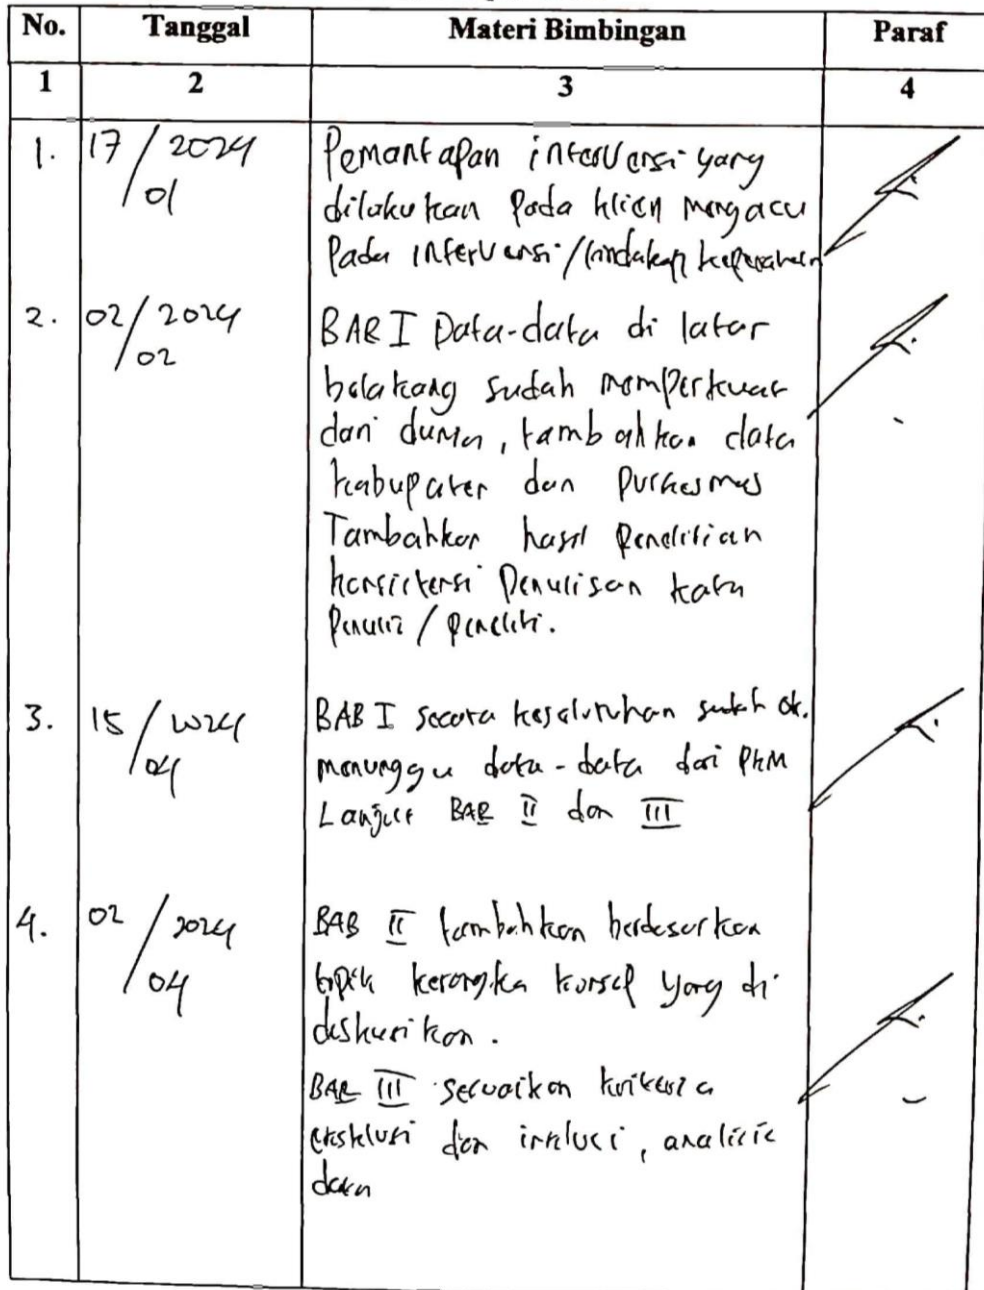 No. Tanggal Materi Bimbingan Paraf
1 2 3 4
1. 17/01 2024 Pemantapan intervensi yang
dilakukan pada klien mengacu
pada intervensi/tindakan keperawatan
2. 02/02 2024 BAB I Data-data di latar
belakang sudah memperkuat
dari dunia, tambahkan data
kabupaten dan Puskesmas
Tambahkan hasil penelitian
konsistensi penulisan kata
penulis / peneliti.
3. 15/04 2024 BAB I secara keseluruhan sudah ok.
menunggu data-data dari PKM
Lanjut BAB II dan III
4. 02/04 2024 BAB II tambahkan berdasarkan
topik kerangka konsep yang di
diskusikan.
BAB III sesuaikan kriteria
eksklusi dan inklusi, analisis
data